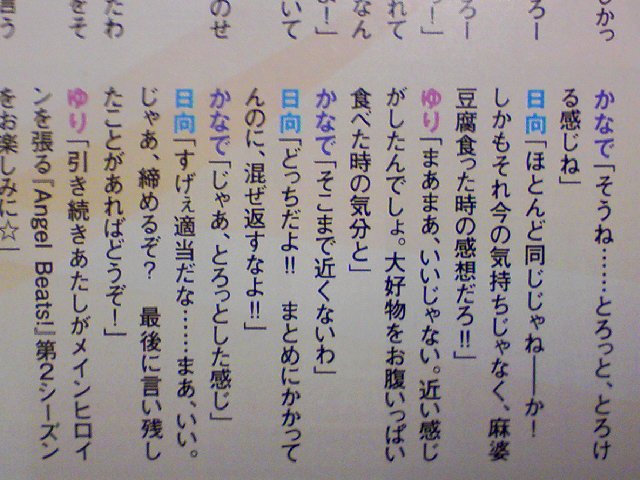 かっ
ろー
ろー
っ！」
れて
なん
！」
いて
のせ
たわ
をそ
言う
かなで「そうね……とろっと、とろけ
る感じね」
日向「ほとんど同じじゃね――か！
しかもそれ今の気持ちじゃなく、麻婆
豆腐食った時の感想だろ!!」
ゆり「まあまあ、いいじゃない。近い感じ
がしたんでしょ。大好物をお腹いっぱい
食べた時の気分と」
かなで「そこまで近くないわ」
日向「どっちだよ!!　まとめにかかって
んのに、混ぜ返すなよ!!」
かなで「じゃあ、とろっとした感じ」
日向「すげぇ適当だな……まあ、いい。
じゃあ、締めるぞ？　最後に言い残し
たことがあればどうぞ！」
ゆり「引き続きあたしがメインヒロイ
ンを張る『Angel Beats!』第2シーズン
をお楽しみに☆」